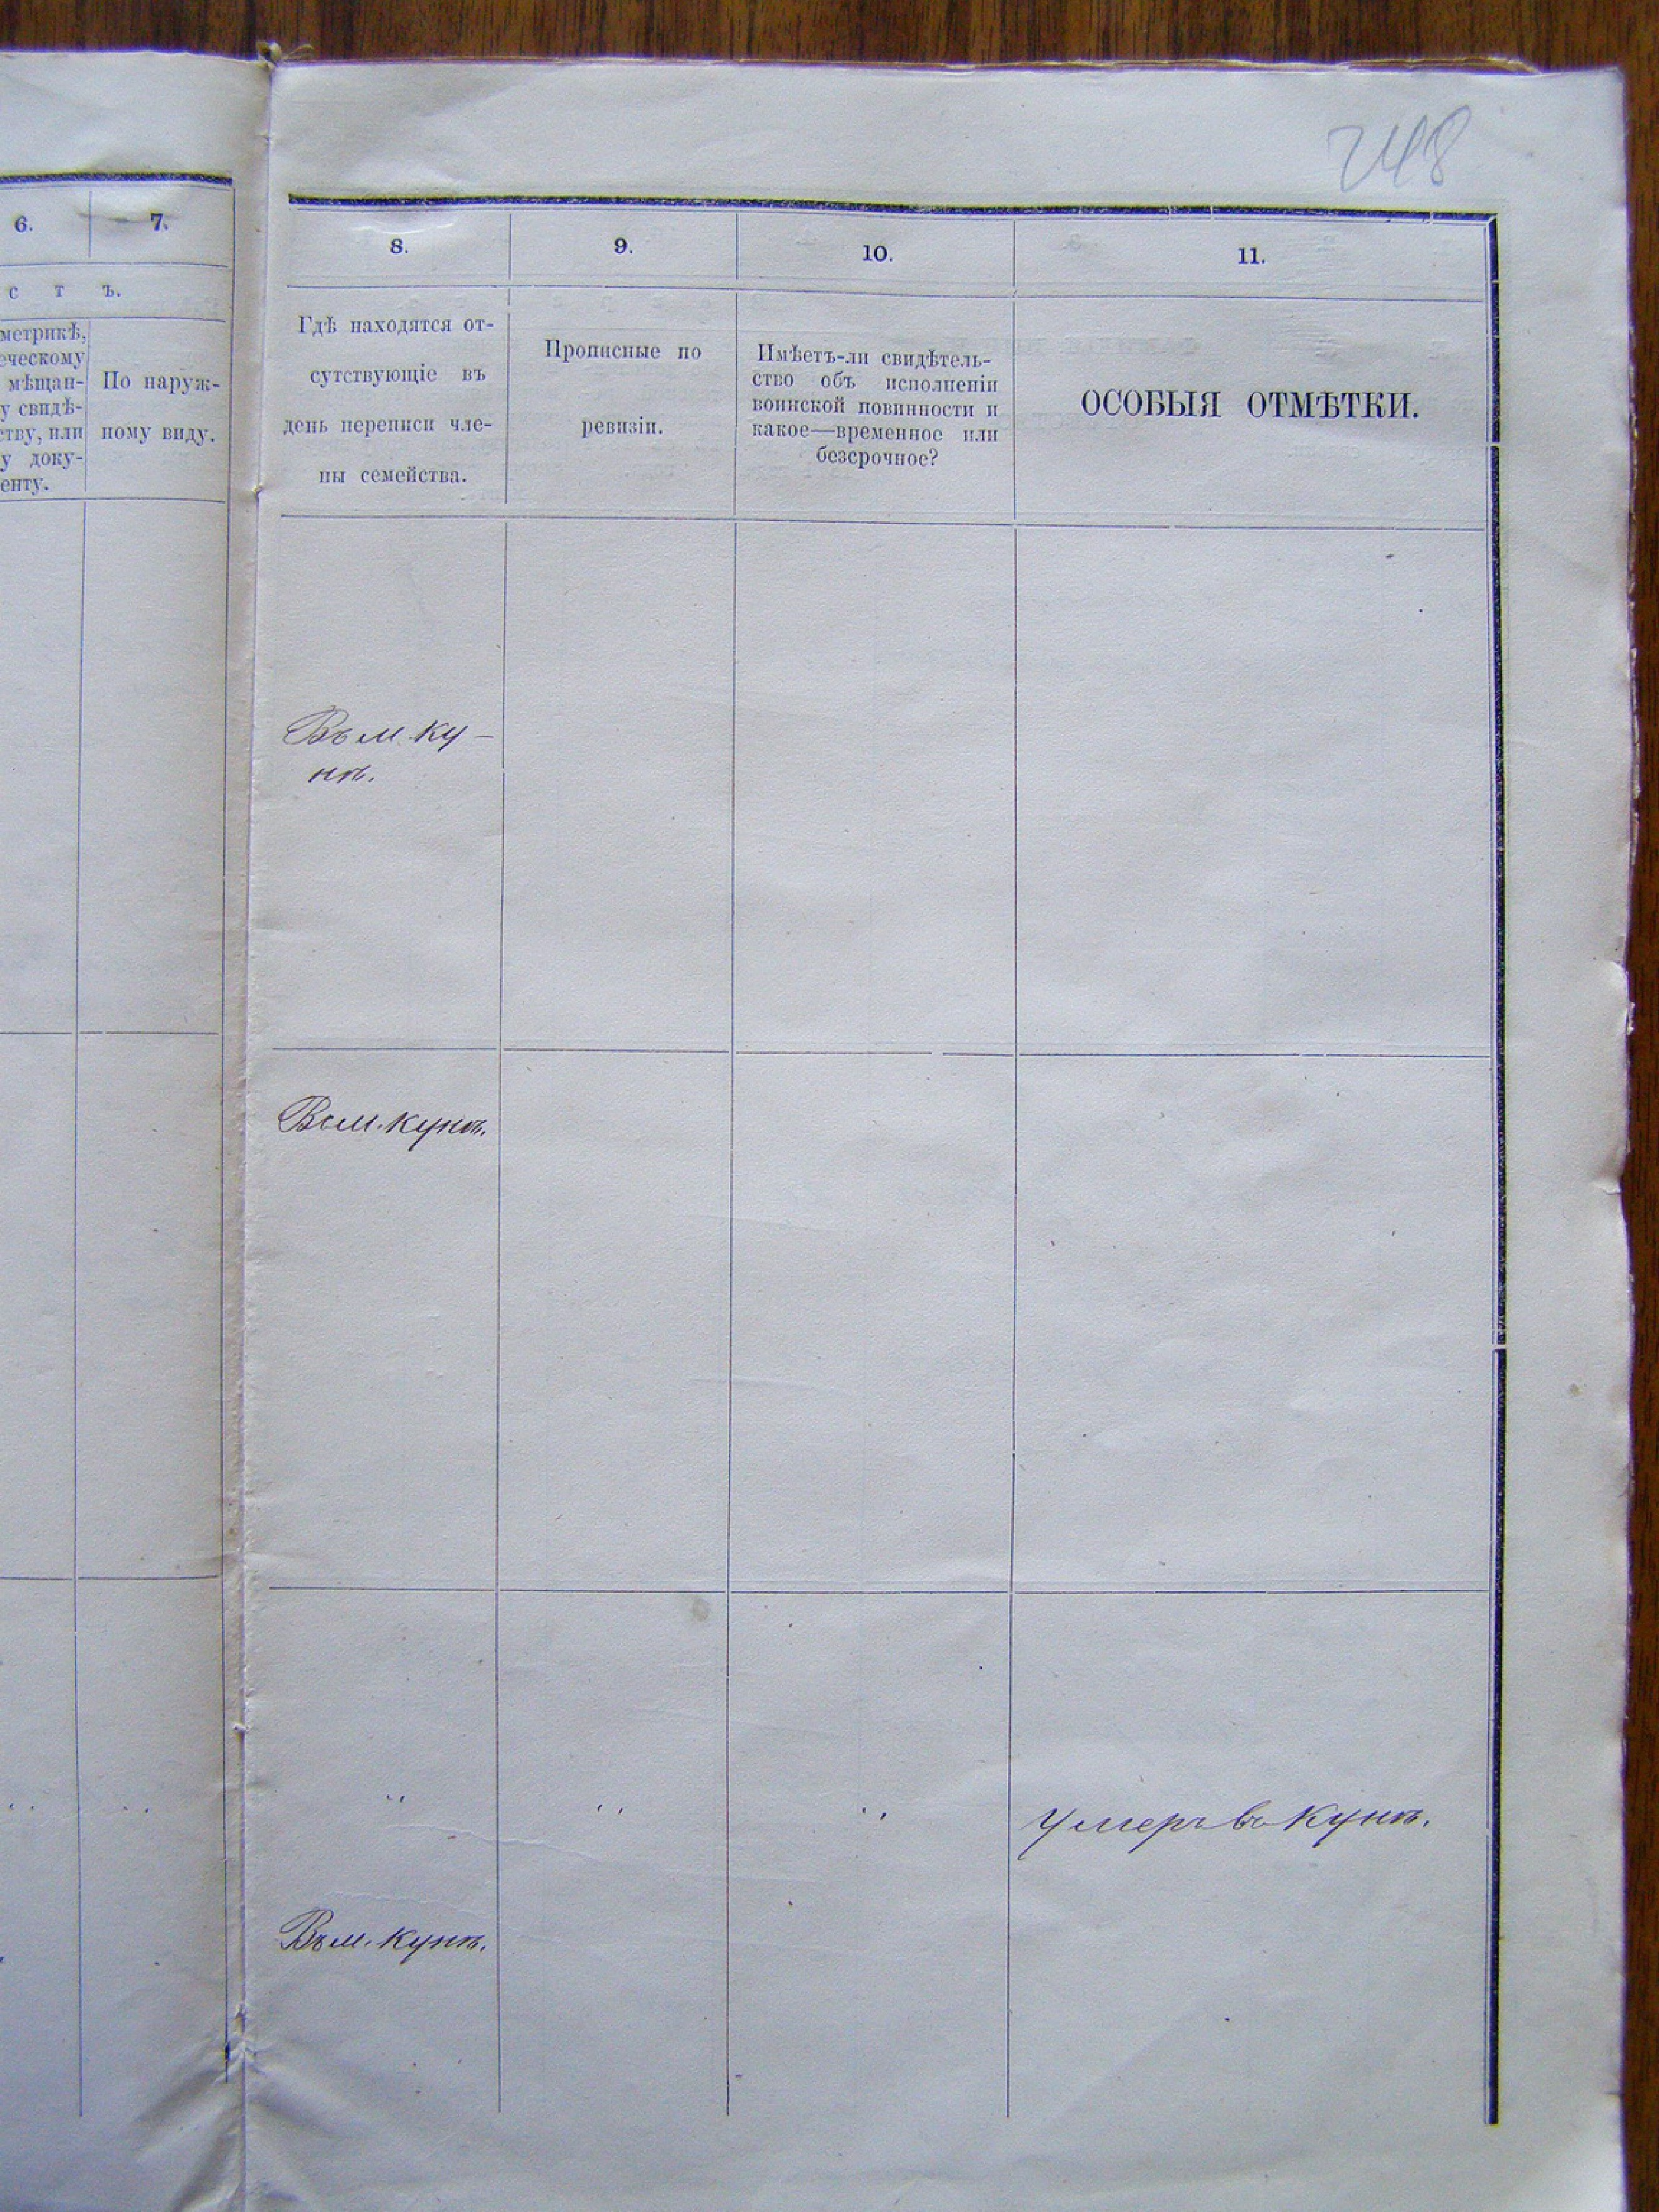 248
6.
7.
с т ъ.
метрикѣ,
ческому
мѣщан-
у свидѣ-
ству, или
у доку-
енту.
По наруж-
ному виду.
8.
9.
10.
11.
Гдѣ находятся от-
сутствующіе въ
день переписи чле-
ны семейства.
Прописные по
ревизіи.
Имѣетъ-ли свидѣтель-
ство объ исполненіи
воинской повинности и
какое—временное или
безсрочное?
ОСОБЫЯ ОТМѢТКИ.
Въ м. Ку-
нѣ.
Въ м. Кунѣ.
" " " " " Умеръ въ Кунѣ.
Въ м. Кунѣ.